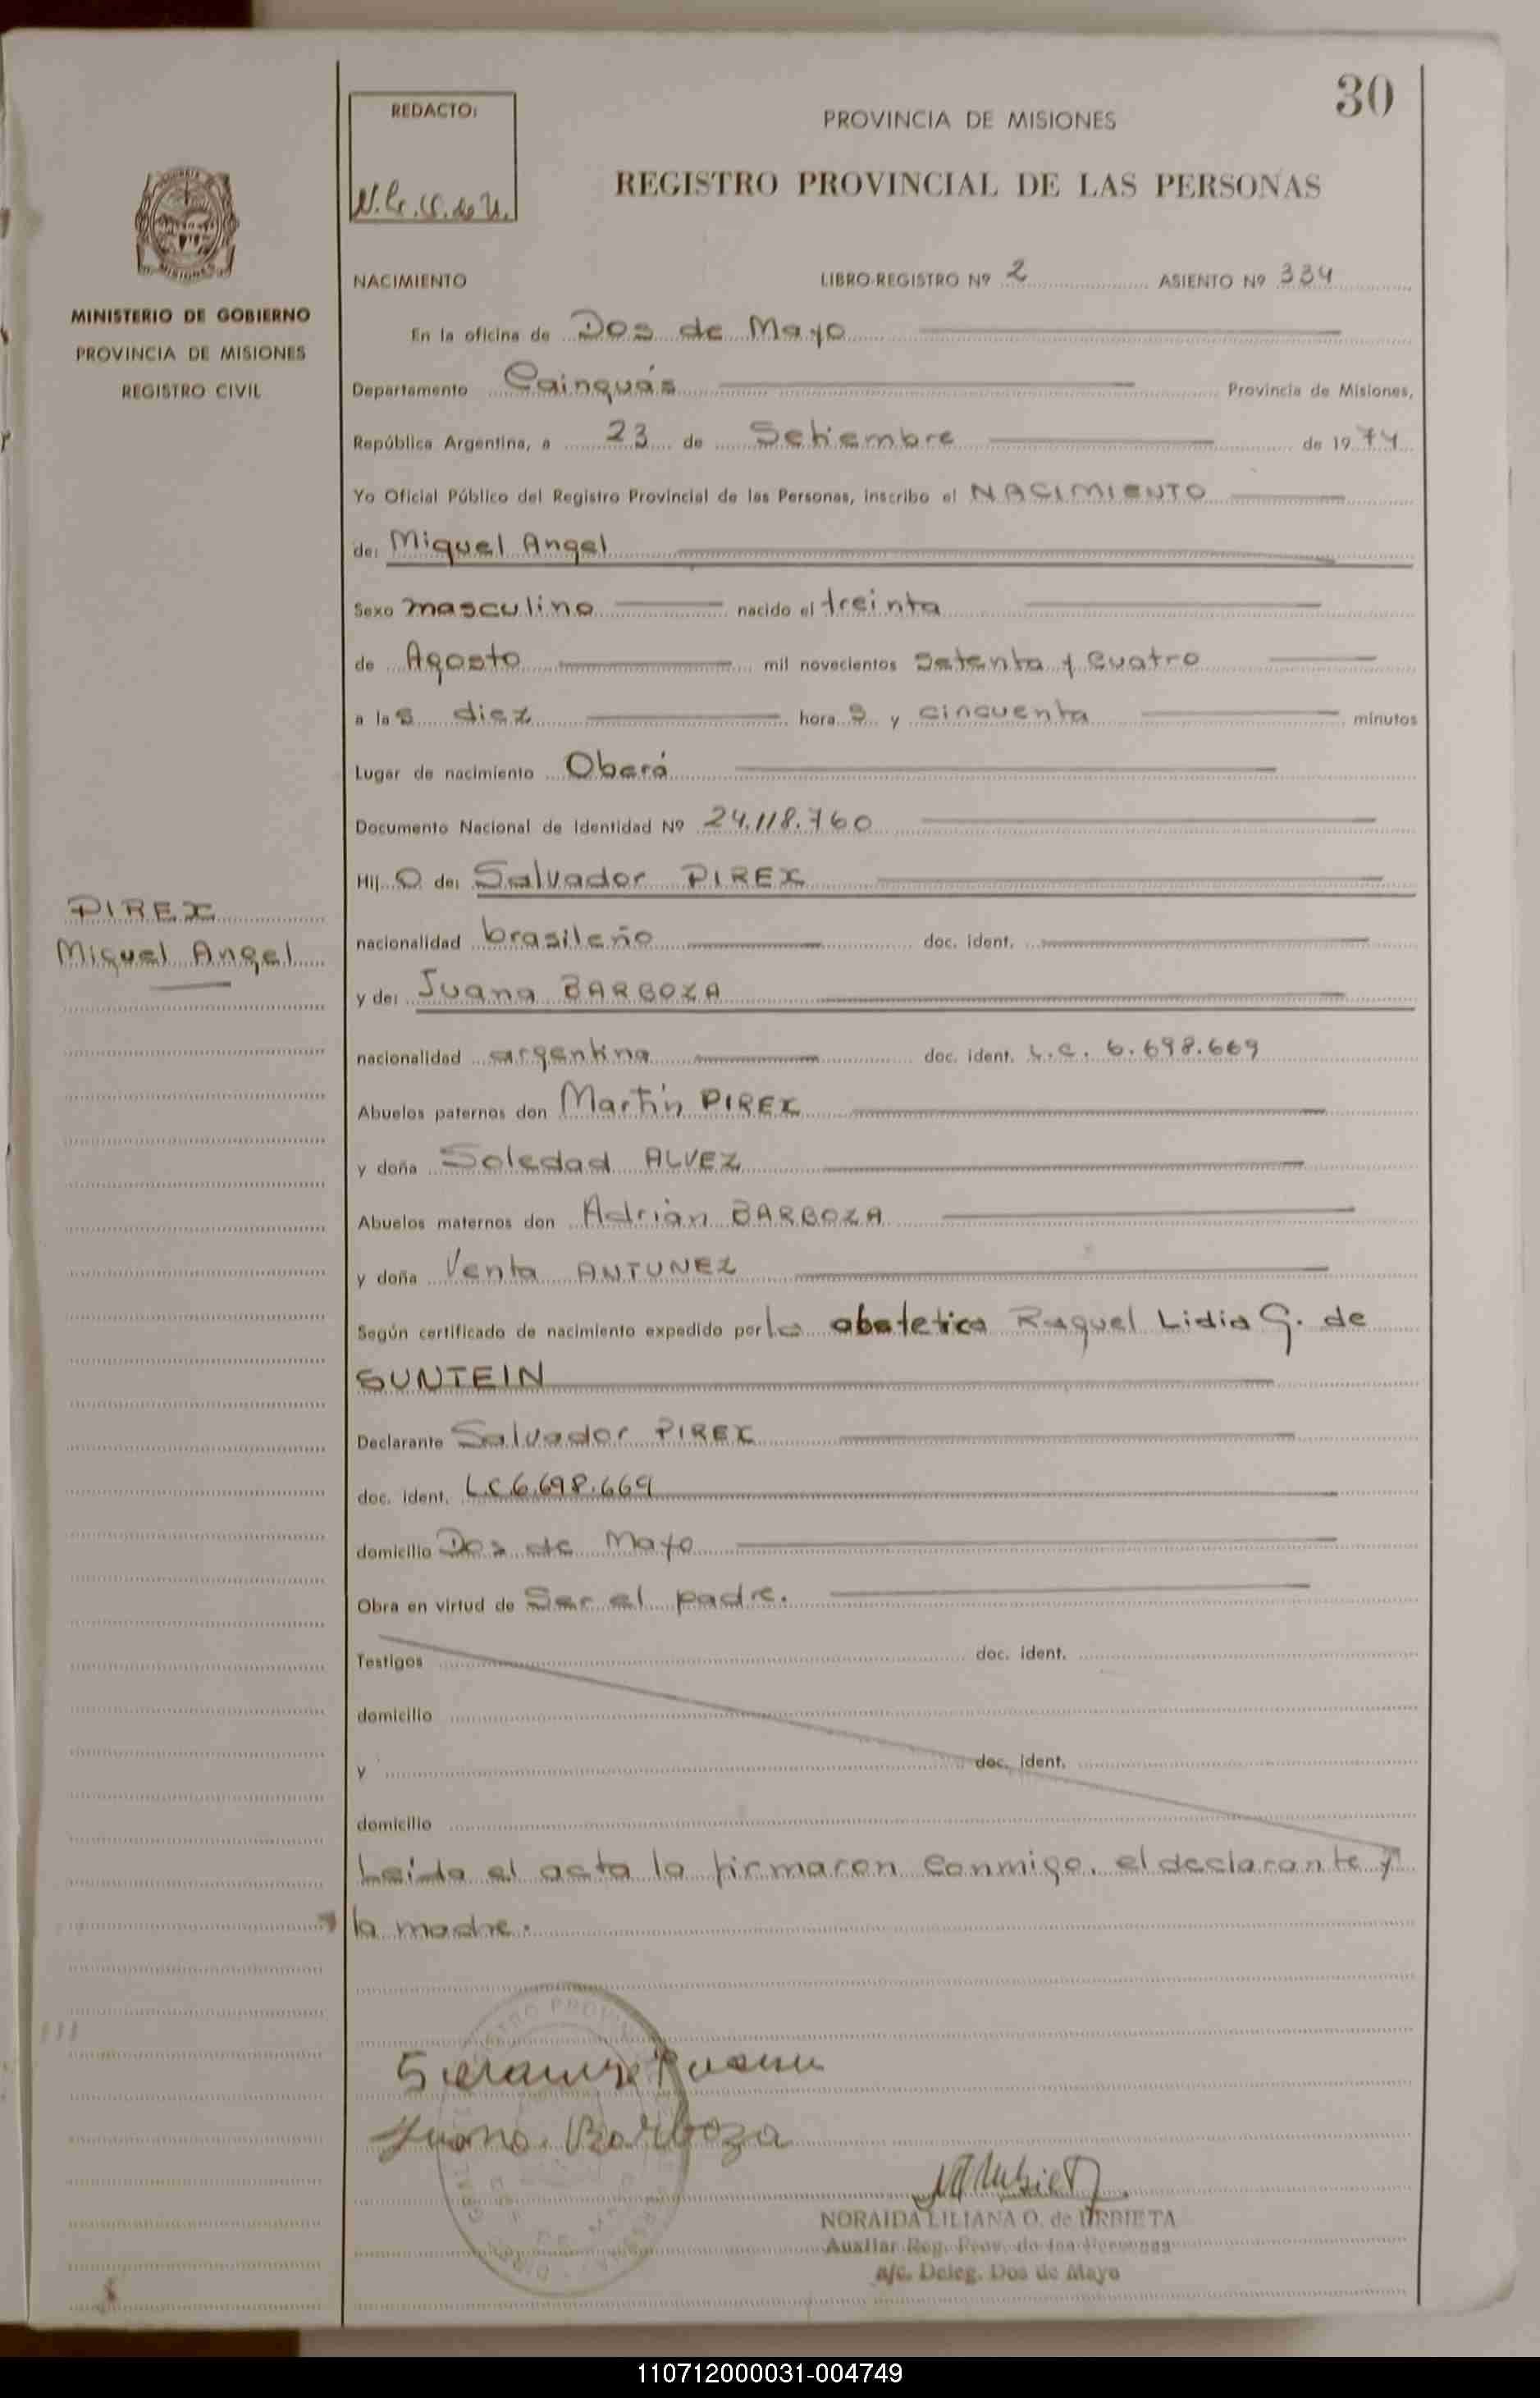 30
REDACTO:
PROVINCIA DE MISIONES
REGISTRO PROVINCIAL DE LAS PERSONAS
MINISTERIO DE GOBIERNO
PROVINCIA DE MISIONES
REGISTRO CIVIL
NACIMIENTO LIBRO-REGISTRO Nº 2 ASIENTO Nº 334
En la oficina de Dos de Mayo
Departamento Cainguás Provincia de Misiones,
República Argentina, a 23 de Setiembre de 1974
Yo Oficial Público del Registro Provincial de las Personas, inscribo el NACIMIENTO
de: Miguel Angel
Sexo masculino nacido el treinta
de Agosto mil novecientos setenta y cuatro
a las diez horas y cincuenta minutos
Lugar de nacimiento Oberá
Documento Nacional de Identidad Nº 24.118.760
Hijo de: Salvador PIREX
PIREX
Miguel Angel
nacionalidad brasileño doc. ident.
y de: Juana BARBOZA
nacionalidad argentina doc. ident. L.C. 6.698.669
Abuelos paternos don Martín PIREX
y doña Soledad ALVEZ
Abuelos maternos don Adrián BARBOZA
y doña Venta ANTUNEZ
Según certificado de nacimiento expedido por la obstetica Raquel Lidia G. de
SUNTEIN
Declarante Salvador PIREX
doc. ident. L.C 6.698.669
domicilio Dos de Mayo
Obra en virtud de ser el padre.
Testigos doc. ident.
domicilio
y doc. ident.
domicilio
Leída el acta la firmaron conmigo. el declarante y
la madre.
Juana Barboza
NORAIDA LILIANA O. de URBIETA
Auxiliar Reg. Prov. de las Personas
a/c. Deleg. Dos de Mayo
110712000031-004749